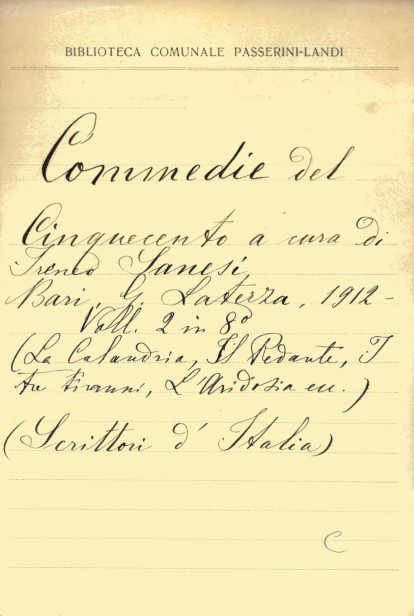 BIBLIOTECA COMUNALE PASSERINI-LANDI
Commedie del
Cinquecento a cura di
Ireneo Sanesi,
Bari, G. Laterza, 1912-
Voll. 2 in 8°
(La Calandria, Il Pedante, I
tre tiranni, L'Aridosia ecc.)
(Scrittori d' Italia)
C